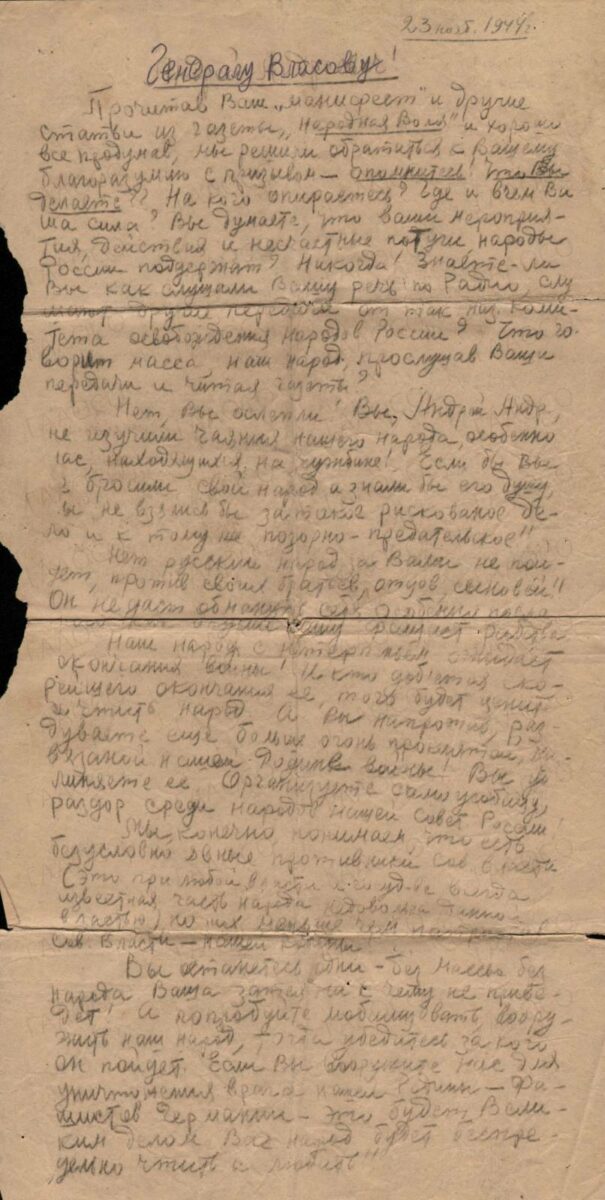 23 нояб. 1944г.
Генералу Власову!
Прочетав Ваш „манифест" и другие
статьи из газеты „Народная Воля" и хорошо
все продумав, мы решили обратиться к Вашему
благоразумию с призывом – опомнитесь! что Вы
делаете?? На кого опираетесь? Где и в чем Ва
ша сила? Вы думаете, что ваши мероприя-
тия, действия и несчастные потуги народы
России поддержат? Никогда! Знаете-ли
Вы как слушали Вашу речь по Радио, слу
другие передачи от так наз. Коми-
тета освобождения народов России? Что го-
ворит масса, наш народ, прослушав Ваши
передачи и читая газеты?
Нет, Вы ослепли! Вы, Андрей Андр,
не изучили чаяния нашего народа, особенно
нас, находящихся на чужбине! Если бы Вы
бросили свой народ а знали бы его душу,
вы не взялись бы за такое рискованое де-
ло и к тому же позорно-предательское!!
Нет русский народ за Вами не пой-
дет, против своих братьев, отцов, сыновей!!
Он не даст обмануть себя. Особенно после
Наш народ с нетерпением ожидает
окончания войны! И кто добьется ско-
рейшего окончания ее того будет ценить
и чтить народ А Вы напротив, раз-
дуваете еще больше огонь проклятой,
нашей Родине войны! Вы
ее. Организуете самоусобицу,
раздор среди народов нашей Совет России!
Мы, конечно, понимаем, что есть
безусловно явные противники сов власти
(Это при любой власти и госуд-ве всегда
известная часть народа недовольна данной
властью) но их меньше чем
Сов. Власти – нашей
Вы останетесь одни – без массы без
народа Ваша затея ни к чему не приве-
дет! А попробуйте мобилизовать, воору-
жить наш народ, убедитесь за кого
он пойдет. Если Вы вооружите нас для
уничтожения врага нашей – Фа-
шистов Германии – это будет Вели-
ким делом Вас народ будет беспре-
дельно чтить и любить!!